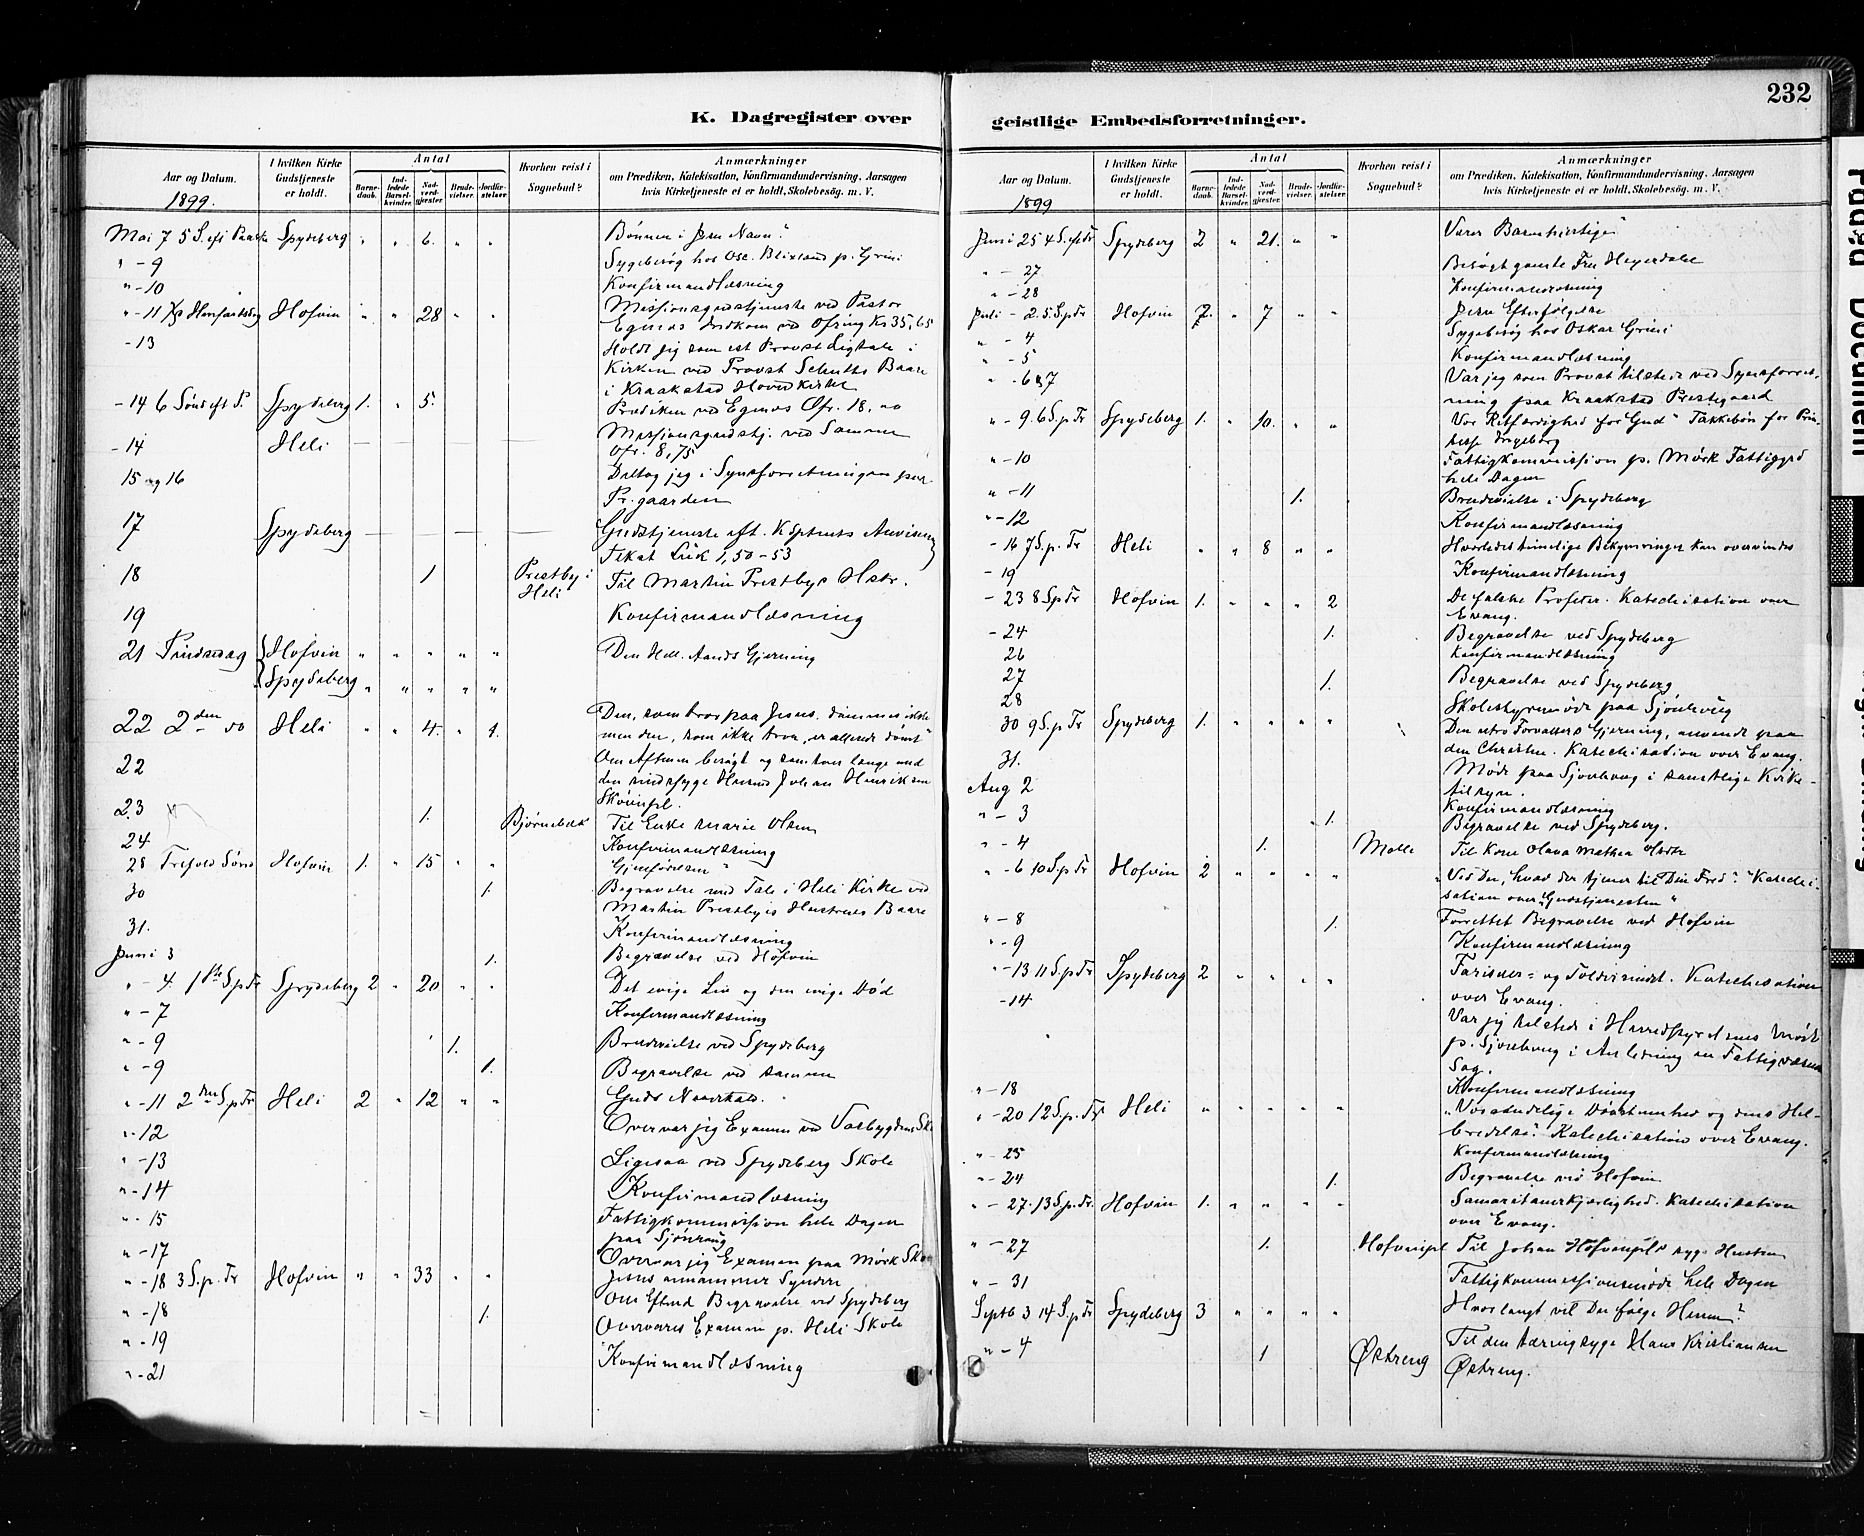 232
K. Dagregister over
Aar og Datum.
I hvilken Kirke Gudstjeneste er holdt.
Antal
Barnedaab.
Indledede Barselkvinder.
Nadverdgjester.
Brudevielser.
Jordfæstelser.
Hvorhen reist i Sognebud?
Anmærkninger
om Prædiken, Katekisation, Konfirmandundervisning, Aarsagen
hvis Kirketjeneste ei er holdt, Skolebesög. m. V.
1899.
Mai 7 5 S. eft Paaske Spydeberg " " 6. " " Bønnen i Jesu Navn."
" - 9 Sygebesøg hos Osc. p. Grini
" - 10 Konfirmandlæsning
" - 11 Hofvin " " 28 " " Missionsgudstjeneste ved Pastor
Indkom ved Ofring Kr 35,65
- 13 Holdt jeg som est Provst Ligtale i
Kirken ved Provst Schults Baare
i Kraakstad Hovedkirke
- 14 6 Sönd eft P. Spydeberg 1. " 5. Prædiken ved Ofr. 18,00
- 14 Heli Missionsgudstj. ved Samme
Ofr. 8,75
15 og 16 Deltog jeg i Synsforretningen paa
Pr. gaarden
17 Spydeberg Gudstjeneste eft.
Tekst Luk 1,50-53
18 1 Prestby i Heli Til Martin Prestbys Hstr.
19 Konfirmandlæsning
21 Pindsedag Hofvin " " " " " Den Hell. Aands Gjerning
Spydeberg " " " " "
22 2den do Heli " " 4. " 1. "Den, som tror paa Jesus, dømmes ikke
men den, som ikke tror, er allerede dømt"
22 Om Aftenen besøgt og samtalt længe med
den sindssyge Husmd Johan Henriksen
23 1. Bjørnebæk Til Enke Marie Olsen
24 Konfirmandlæsning
28 Trefold Sönd Hofvin 1. " 15 " " Gjenfödelsen"
30 1. Begravelse med Tale i Heli Kirke ved
Martin Prestbyis Hustrues Baare
31. Konfirmandlæsning
Juni 3 1. Begravelse ved Hofvin
" - 4. 1ste S.p Tr Spydeberg 2 " 20 " " Det evige Liv og den evige Död
" - 7 Konfirmandlæsning
" - 9 1. Brudevielse ved Spydeberg
" - 9 1. Begravelse ved samme
" - 11 2den S.p Tr Heli 2 " 12 " " Guds Naadekald.
" - 12 Overvar jeg Examen ved
" - 13 Ligesaa ved Spydeberg Skole
" - 14 Konfirmandlæsning
" - 15 Fattigkommission hele Dagen
paa
" - 17 Overvar jeg Examen paa Mørk
" - 18 3 S.p. Tr Hofvin " " 33 " " Jesus annammer Syndere
" - 18 1. Om Efterd Begravelse ved Spydeberg
" - 19 Overværet Examen p. Heli Skole
" - 21 Konfirmandlæsning
geistlige Embedsforretninger.
Aar og Datum.
I hvilken Kirke Gudstjeneste er holdt.
Antal
Barnedaab.
Indledede Barselkvinder.
Nadverdgjester.
Brudevielser.
Jordfæstelser.
Hvorhen reist i Sognebud?
Anmærkninger
om Prædiken, Katekisation, Konfirmandundervisning, Aarsagen
hvis Kirketjeneste ei er holdt, Skolebesög. m. V.
1899
Juni 25 4 S. eft Tr Spydeberg 2 " 21. " " Værer Barmhjertige"
" - 27 Besøgt gamle Fru Heyerdahl
" - 28 Konfirmandlæsning
Juli - 2. 5 S.p Tr Hofvin 2. " 7 " " Jesu Efterfølgelse
" - 4 Sygebesøg hos Oskar Grini
" - 5 Konfirmandlæsning
" - 6 & 7 Var jeg som Provst tilstede ved Synsforret-
ning paa Kraakstad Prestegaard
" - 9. 6 S.p Tr Spydeberg 1. " 10. " " Vor Retfærdighed for Gud" Takkebøn for Prin-
sesse Ingeborg
" - 10 Fattigkommission p. Mørk Fattiggrd
hele Dagen
" - 11 1. Brudevielse i Spydeberg
" - 12 Konfirmandlæsning
- 16 7 S.p. Tr Heli " " 8 " " Hvorledes timelige Bekymringer kan overvindes
- 19 Konfirmandlæsning
- 23 8 S.p Tr Hofvin 1. " " " 2 De falske Profeter. Katechisation over
Evang.
- 24 1. Begravelse ved Spydeberg
26 Konfirmandlæsning
27 1. Begravelse ved Spydeberg
28 Skolestyremøde paa
30 9 S.p Tr Spydeberg 1. " " " " Den utro Forvalters Gjerning, anvendt paa
den Christne. Katechisation over Evang.
31. Møde paa i samtlige Kirke-
tilsyn.
Aug 2 Konfirmandlæsning
" - 3 1. Begravelse ved Spydeberg.
" - 4 1. Til Kone Olava Mathea
" - 6 10 S.p Tr Hofvin 2 " " " " "Vid Du, hvad der tjener til Din Fred". "Katechi-
sation over "Gudstjenesten"
" - 8 1. Forrettet Begravelse ved Hofvin
" - 9 Konfirmandlæsning
" - 13 11 S.p Tr Spydeberg 2 " " " " Farisæer- og Toldersindet. Katechisation
over Evang.
- 14 Var jeg tilstede i Herredsstyrelsens Møde
p. i Anledning en Fattigvæsens
Sag.
" - 18 Konfirmandlæsning
" - 20 12 S.p. Tr Heli " " " " " "Vor aandelige Døvstumhed og dens Hel-
bredelse". Katechisation over Evang.
" - 25 Konfirmandlæsning
" - 24 1. Begravelse ved Hofvin
" - 27. 13 S.p. Tr. Hofvin 1. " " " " Samaritanerkjærlighed. Katechisation
over Evang.
" - 27 1. Hofvinpl Til Johan Hofvinpls syge Hustru
" - 31 Fattigkommissionsmøde hele Dagen
Septb 3 14 S.p Tr Spydeberg 3 " " " " Hvor langt vil Du følge Herren?
" - 4 1 Østreng Til den tæringssyge Hans Kristiansen
Østreng.